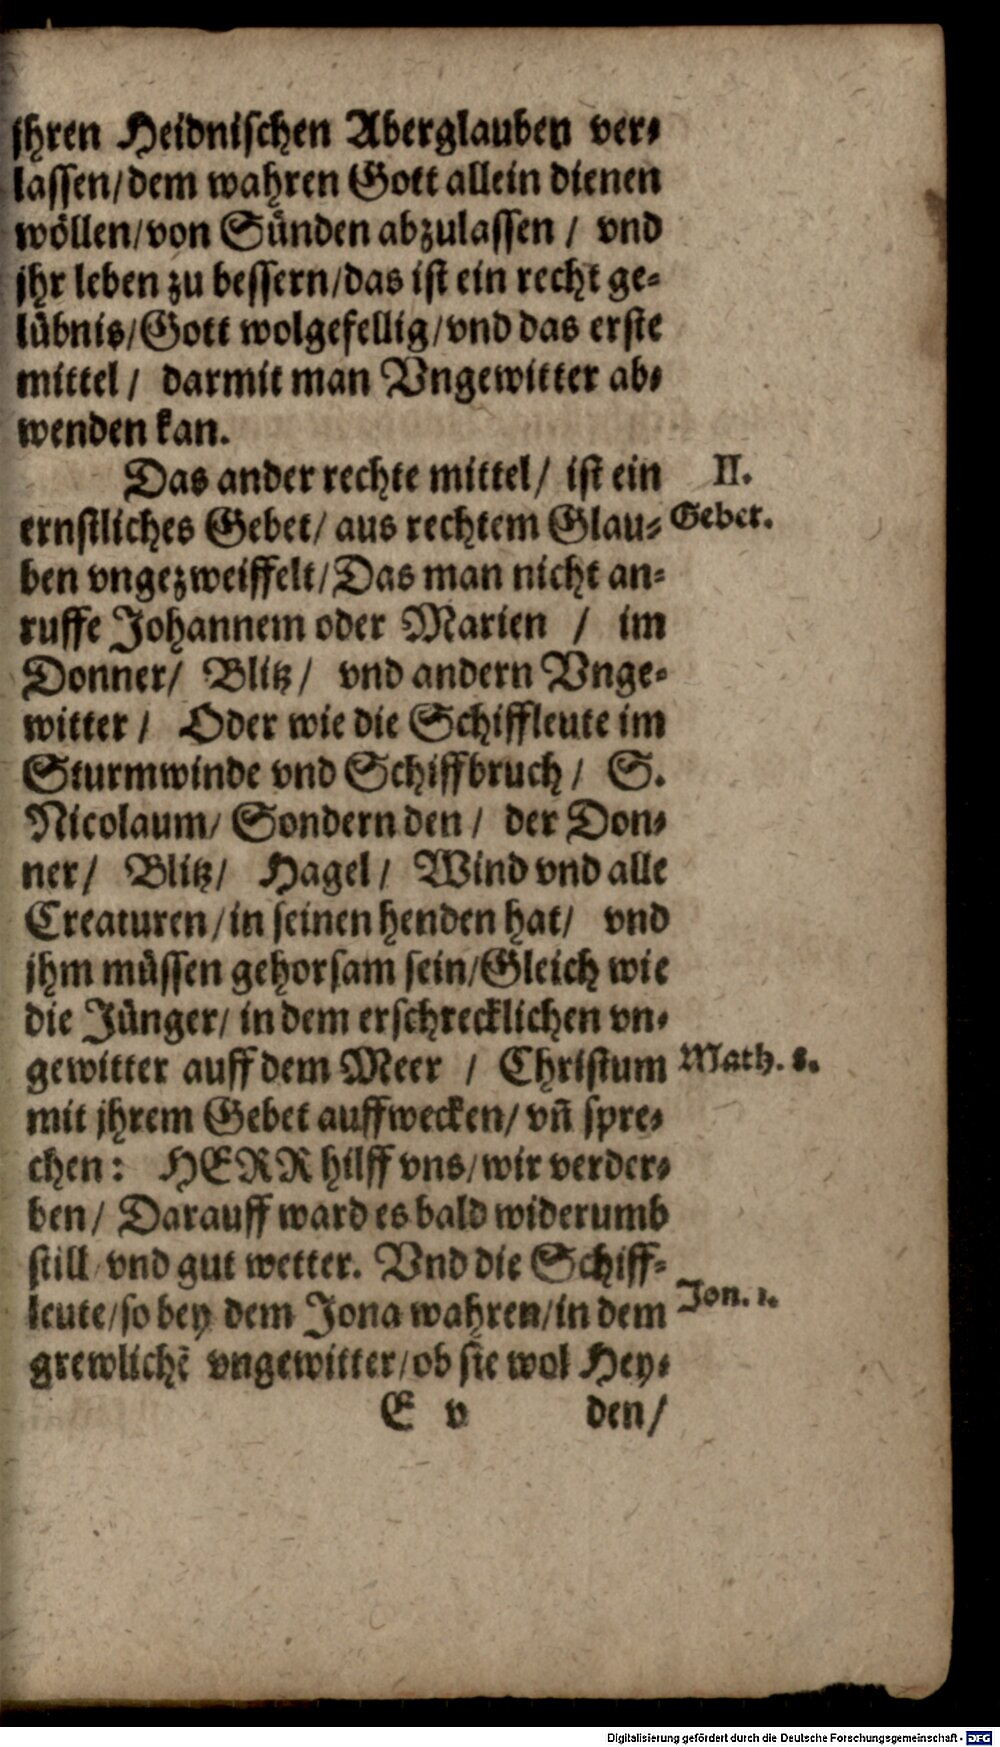 jhren Heidnischen Aberglauben ver-
lassen/dem wahren Gott allein dienen
wöllen/von Sünden abzulassen / vnd
jhr leben zu bessern/das ist ein recht ge-
lübnis/Gott wolgefellig/vnd das erste
mittel / darmit man Vngewitter ab-
wenden kan.
Das ander rechte mittel / ist ein
II.
ernstliches Gebet/ aus rechtem Glau-
Gebet.
ben vngezweiffelt/Das man nicht an-
ruffe Johannem oder Marien / im
Donner/ Blitz/ vnd andern Vnge-
witter / Oder wie die Schiffleute im
Sturmwinde vnd Schiffbruch/ S.
Nicolaum/ Sondern den / der Don-
ner/ Blitz/ Hagel / Wind vnd alle
Creaturen/in seinen henden hat/ vnd
jhm müssen gehorsam sein/Gleich wie
die Jünger/ in dem erschrecklichen vn-
gewitter auff dem Meer / Christum
Math. 8.
mit jhrem Gebet auffwecken/ vñ spre-
chen: HERR hilff vns/wir verder-
ben/ Darauff ward es bald widerumb
still vnd gut wetter. Vnd die Schiff-
leute/so bey dem Jona wahren/in dem
Jon. 1.
grewlichẽ vngewitter/ob sie wol Hey-
E v den/
Digitalisierung gefördert durch die Deutsche Forschungsgemeinschaft - DFG